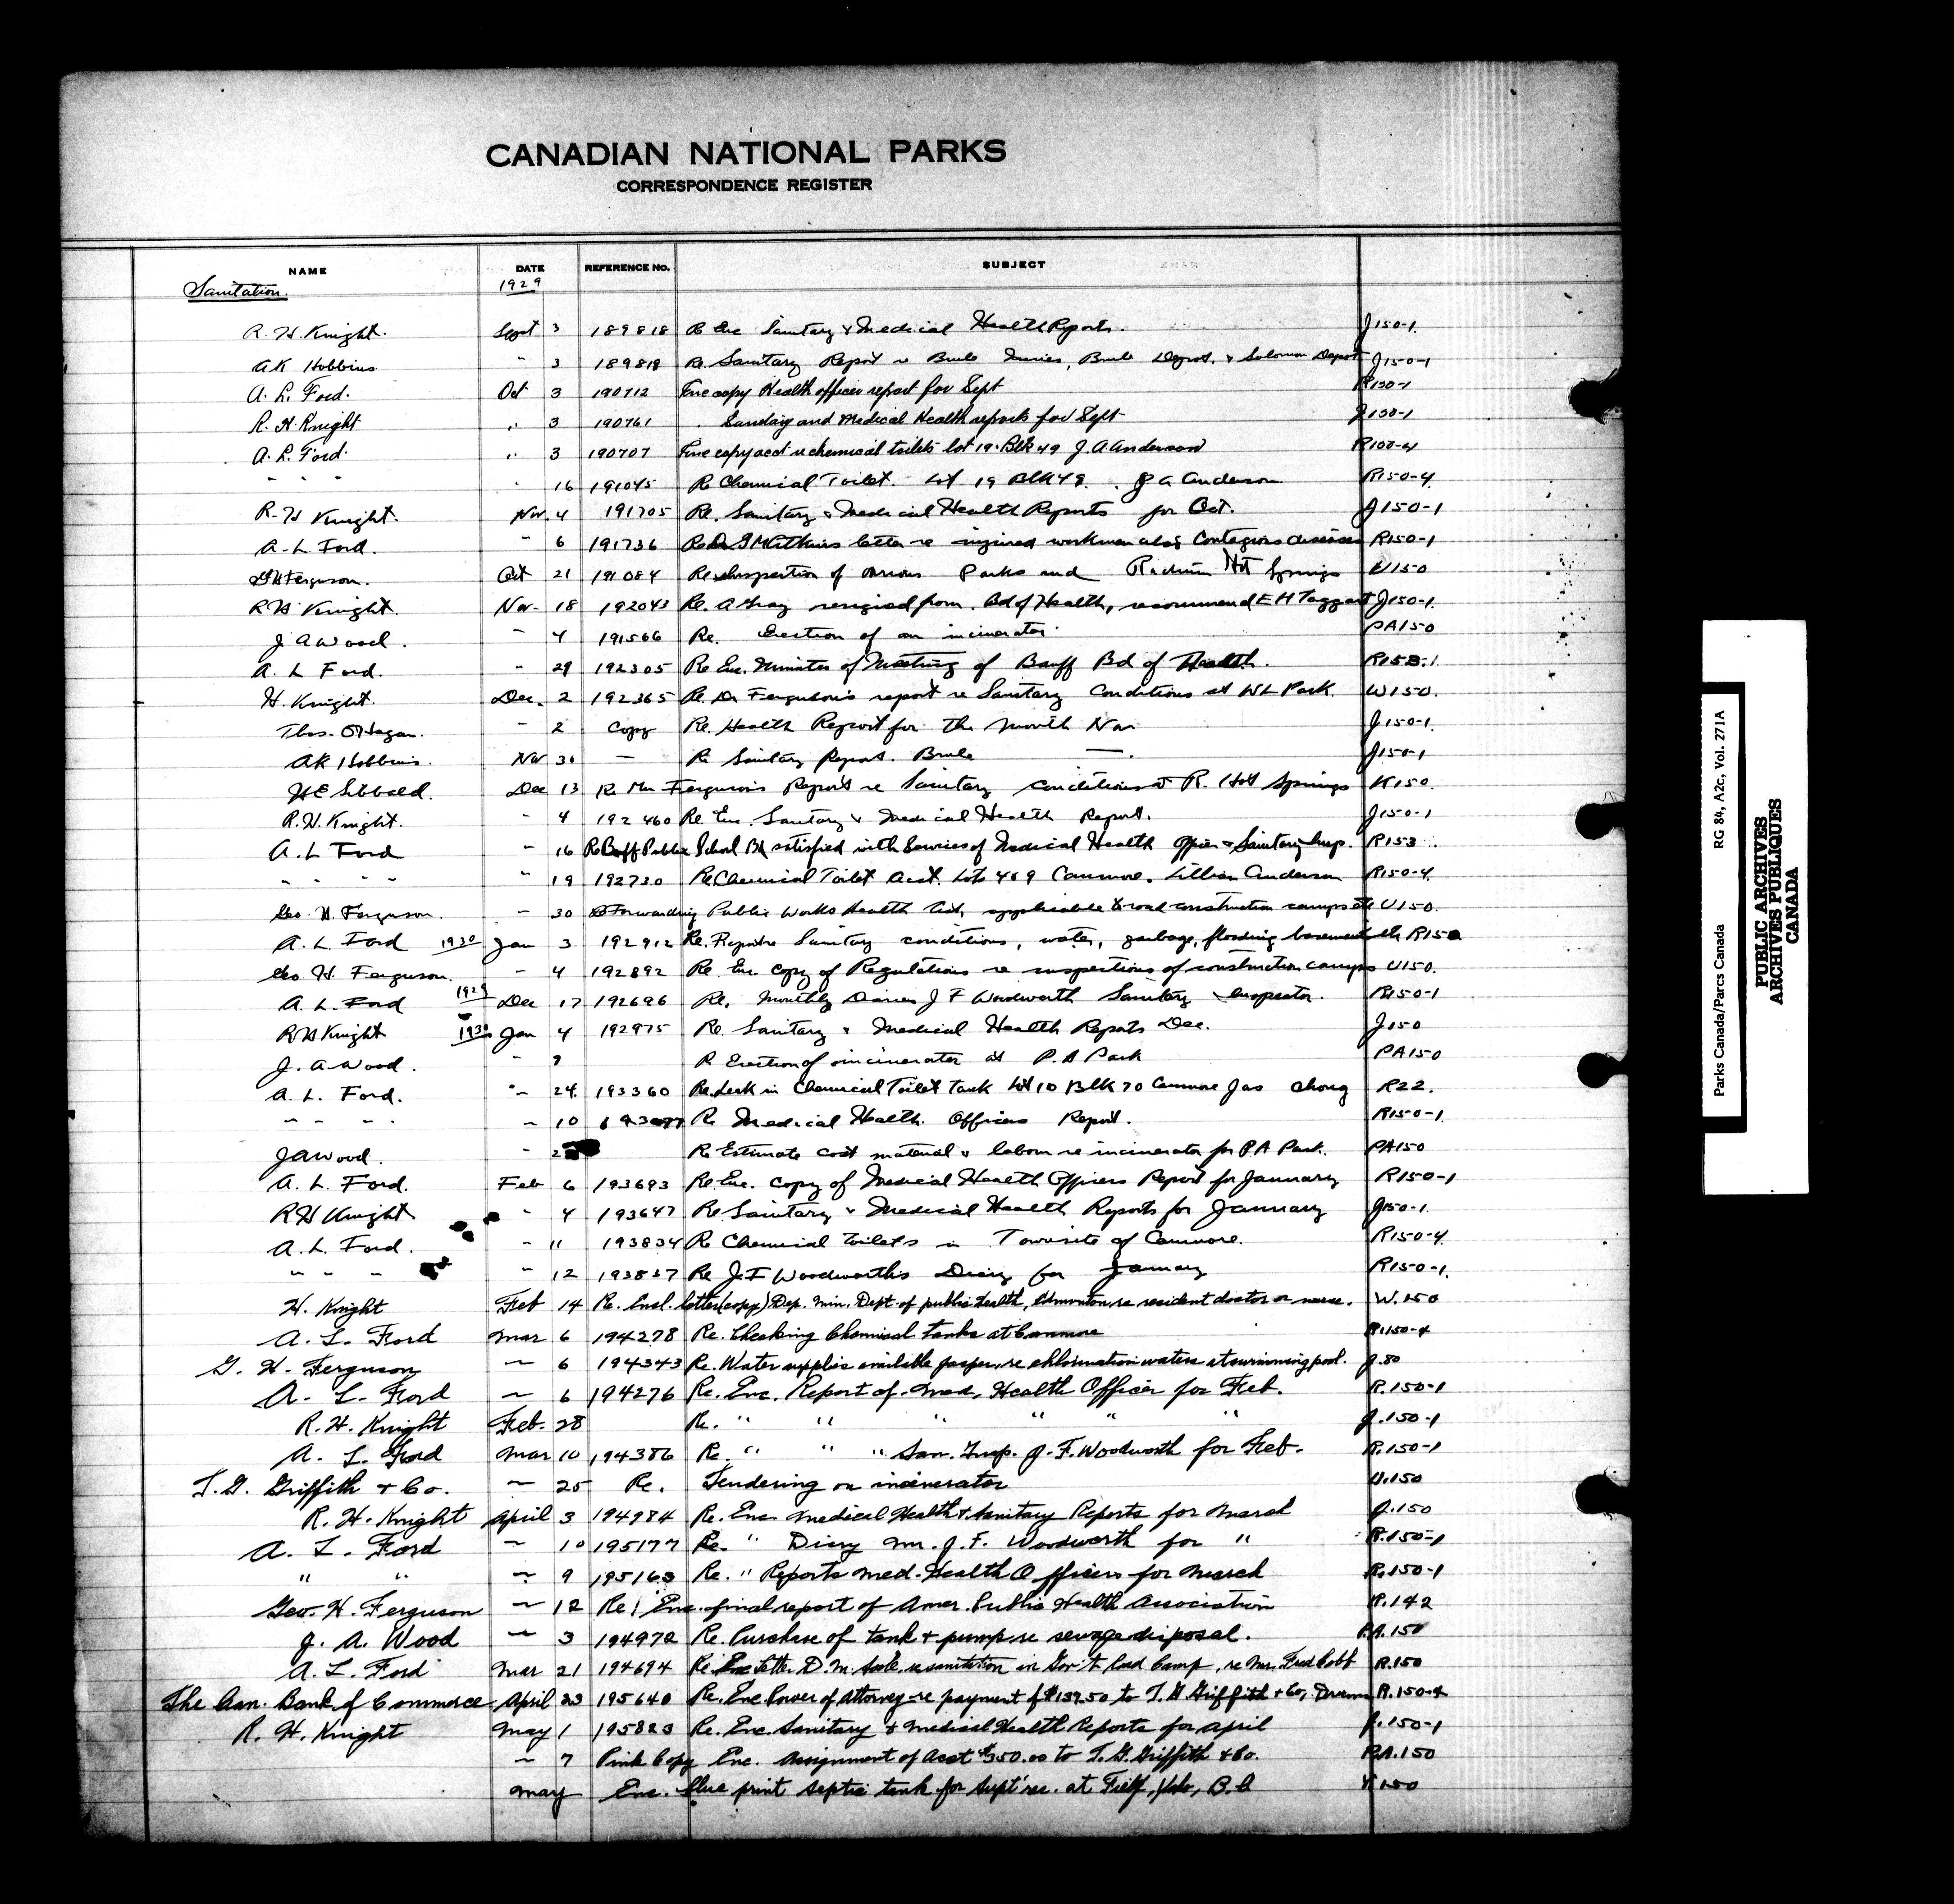 CANADIAN NATIONAL PARKS
CORRESPONDENCE REGISTER
NAME DATE REFERENCE NO. SUBJECT
Sanitation. 1929
R. H. Knight. Sept 3 189818 Re Enc Sanitary & Medical Health Reports. J150-1.
AK Hobbins " 3 189819 Re. Sanitary Report re Brule Depot. & Solomon Depot J150-1
A. L. Ford. Oct 3 190712 Enc copy Health officer report for Sept R150-1
R. H. Knight " 3 190761 and Medical Health reports for Sept J150-1
A. L. Ford. " 3 190707 Enc copy acct re chemical toilets lot 19. Blk 49 J. A. Anderson R100-4
" " " " 16 191045 Re Chemical Toilet. Lot 19 Blk 49. J A Anderson R150-4.
R. H Knight. Nov. 4 191705 Re. Sanitary & Medical Health Reports for Oct. J150-1
A-L Ford. " 6 191736 letter re injured workmen also Contagious diseases R150-1
Ferguson. Oct 21 191084 Re Inspection of various Parks and Radium Hot Springs U150
R H Knight. Nov- 18 192043 Re. A Gray resigned from. Bd of Health, recommend E H Taggart J150-1.
J A Wood. " 4 191566 Re. Erection of an incinerator. PA150
A. L Ford. " 29 192305 Re Enc. Minutes of Meeting of Banff Bd of Health.
H. Knight. Dec. 2 192365 Re. Dr Ferguson's report re Sanitary Conditions at WL Park. W150.
Thos. O'Hagan. " 2 Copy Re. Health Report for the month Nov J.150-1.
AK Hobbins. Nov 30 — Re Sanitary Report. Brule — J150-1
H E Sibbald. Dec 13 Re Mr Ferguson's Report re Sanitary conditions at R. Hot Springs K150.
R. H. Knight. " 4 192460 Re. Enc. Sanitary & Medical Health Report. J150-1
A. L Ford " 16 Re Banff Public School Bd satisfied with Services of Medical Health Officer & Sanitary Insp. R153
" " " " 19 192730 Re Chemical Toilet Acct. Canmore. Lillian Anderson R150-4.
Geo. H. Ferguson. " 30 Forwarding Public Works Health Act, applicable to road construction camps etc U150.
A. L. Ford 1930 Jan 3 192912 Re. Report re Sanitary conditions, water, garbage, flooding basements etc R150
Geo H. Ferguson. " 4 192892 Re Enc Copy of Regulations re inspections of construction camps U150.
A. L. Ford 1929 Dec 17 192696 Re. Monthly Diaries J F Woodworth Sanitary Inspector. R150-1
R H Knight 1930 Jan 4 192975 Re. Sanitary & Medical Health Reports Dec. J150
J. A Wood. " 7 R Erection of incinerator at P. A Park PA150
A. L. Ford. " 24. 193360 Re Leak in Chemical Toilet Tank Lot 10 Blk 70 Canmore Jas Chong R22.
" " " " 10 Re Medical Health Officers Report. R150-1.
J A Wood. " Re Estimate cost material & labour re incinerator for P A Park. PA150
A. L. Ford. Feb 6 193693 Re. Enc. Copy of Medical Health Officers Report for January R150-1
R H Knight " 4 193647 Re Sanitary & Medical Health Reports for January J150-1.
A. L. Ford. " 11 193834 Re Chemical toilets in Townsite of Canmore. R150-4.
" " " " 12 193837 Re J. F Woodworth's Diary for January R150-1.
H. Knight Feb 14 Re. Encl. letter (copy) Dep. Min. Dept. of public Health, Edmonton, re resident doctor or nurse. W.150
A. L. Ford Mar 6 194278 Re. Checking Chemical tanks at Canmore R.150-4
G. H. Ferguson " 6 194343 Re. Water supplies available Jasper, re chlorination waters at swimming pool. J.80
A. L. Ford " 6 194276 Re. Enc. Report of Med. Health Officer for Feb. R.150-1
R. H. Knight Feb. 28 Re. " " " " " " J.150-1
A. L. Ford Mar 10 194386 Re. " " " San. Insp. J. F. Woodworth for Feb. R.150-1
T. G. Griffith & Co. " 25 Re. Tendering on incinerator U.150
R. H. Knight April 3 194984 Re. Enc. Medical Health & Sanitary Reports for March J.150
A. L. Ford " 10 195177 Re. " Diary Mr. J. F. Woodworth for " R.150-1
" " " 9 195163 Re. " Reports Med. Health Officers for March R.150-1
Geo. H. Ferguson " 12 Re. Enc. final report of Amer. Public Health Association
J. A. Wood " 3 194972 Re. Purchase of tank & pump re sewage disposal. P.A. 150
A. L. Ford Mar 21 194694 Re Enc letter D. M. re sanitation in Gov't Road Camp, re Mr. Fred Cobb R.150
The Can. Bank of Commerce April 23 195640 Re. Enc Power of Attorney re payment of $139.50 to T. G. Griffith & Co, R.150-4
R. H. Knight May 1 195823 Re. Enc Sanitary & Medical Health Reports for April J.150-1
" 7 Pink Copy Enc. Assignment of Acct $350.00 to T. G. Griffith & Co. P.A.150
May Enc. blue print septic tank for Supt rec. at Field, Yoho, B.C Y.150
RG 84, A2c, Vol. 271A
Parks Canada/Parcs Canada
PUBLIC ARCHIVES
ARCHIVES PUBLIQUES
CANADA